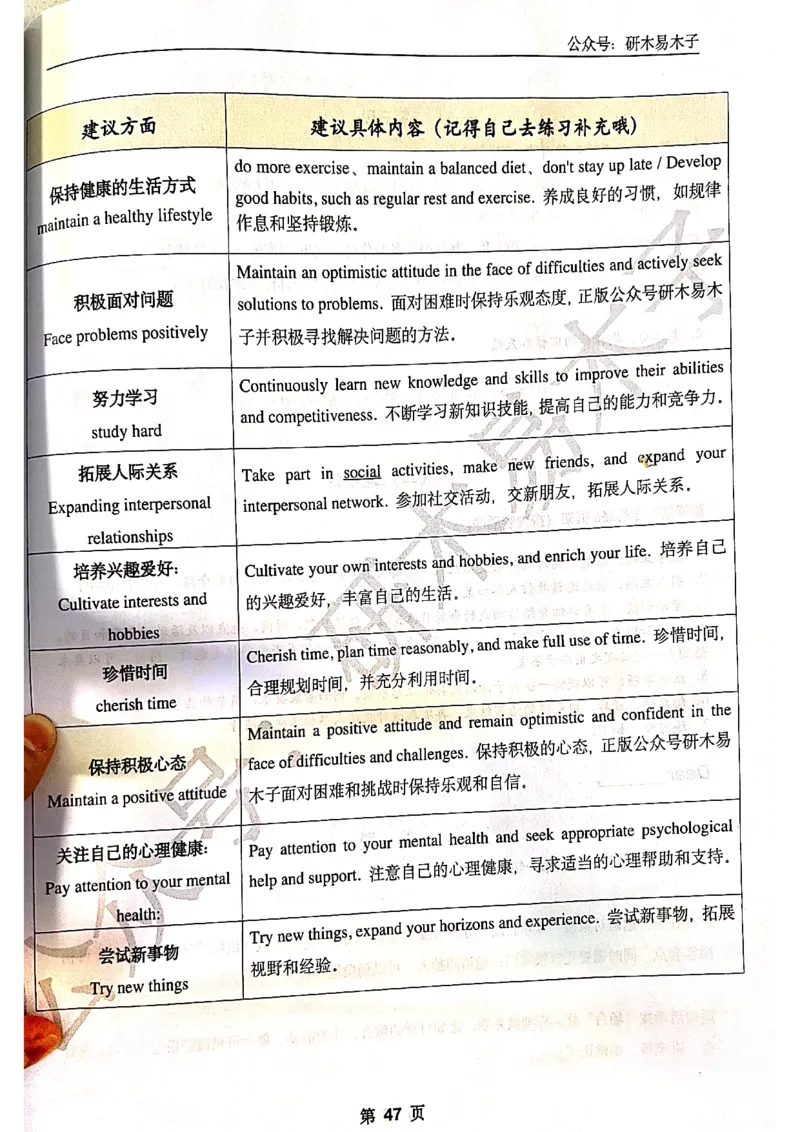 公众号：研木易木子
建议方面
建议具体内容（记得自己去练习补充哦）
保持健康的生活方式
maintain a healthy lifestyle
do more exercise、maintain a balanced diet、don't stay up late / Develop
good habits, such as regular rest and exercise. 养成良好的习惯，如规律
作息和坚持锻炼。
积极面对问题
Face problems positively
Maintain an optimistic attitude in the face of difficulties and actively seek
solutions to problems. 面对困难时保持乐观态度，正版公众号研木易木
子并积极寻找解决问题的方法．
努力学习
study hard
Continuously learn new knowledge and skills to improve their abilities
and competitiveness. 不断学习新知识技能，提高自己的能力和竞争力．
拓展人际关系
Expanding interpersonal
relationships
Take part in social activities, make new friends, and expand your
interpersonal network. 参加社交活动，交新朋友，拓展人际关系．
培养兴趣爱好：
Cultivate interests and
hobbies
Cultivate your own interests and hobbies, and enrich your life. 培养自己
的兴趣爱好，丰富自己的生活．
珍惜时间
cherish time
Cherish time, plan time reasonably, and make full use of time. 珍惜时间，
合理规划时间，并充分利用时间．
保持积极心态
Maintain a positive attitude
Maintain a positive attitude and remain optimistic and confident in the
face of difficulties and challenges. 保持积极的心态，正版公众号研木易
木子面对困难和挑战时保持乐观和自信．
关注自己的心理健康：
Pay attention to your mental
health:
Pay attention to your mental health and seek appropriate psychological
help and support. 注意自己的心理健康，寻求适当的心理帮助和支持．
尝试新事物
Try new things
Try new things, expand your horizons and experience. 尝试新事物，拓展
视野和经验．
第 47 页